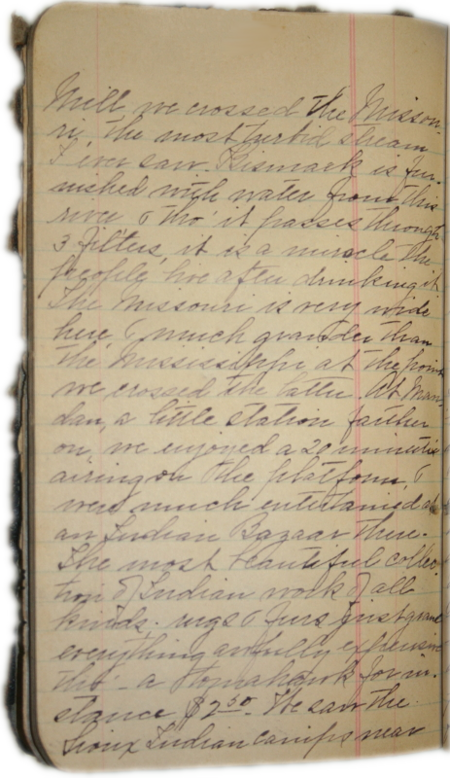 Mill we crossed the Missou-
ri, the most turbid stream
I ever saw. Bismark is fur-
nished with water from this
river & tho' it passes through
3 filters, it is a miracle the
people live after drinking it
The Missouri is very wide
here & much grander than
the Mississippi at the point
we crossed the latter. At Man-
dan, a little station farther
on, we enjoyed a 20 minutes
airing on the platform, &
were much entertained at
an Indian Bazaar there.
The most beautiful collec-
tion of Indian work of all
kinds. rugs & furs just grand
everything awfully expensive
tho' - a Tomahawk for in-
stance $2.50. We saw the
Sioux Indian camps near